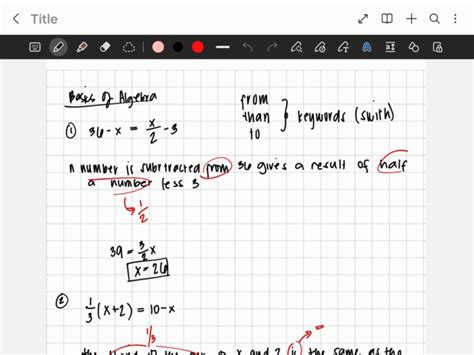 Title
Basics of Algebra
from
than
to
keywords (swith)
① 36-x = x/2 -3
A number is subtracted from 36 gives a result of half
a number less 3
1/2
39 = 3/2 x
x=26
② 1/3 (x+2) = 10-x
1/3
x and 2 is the same as the